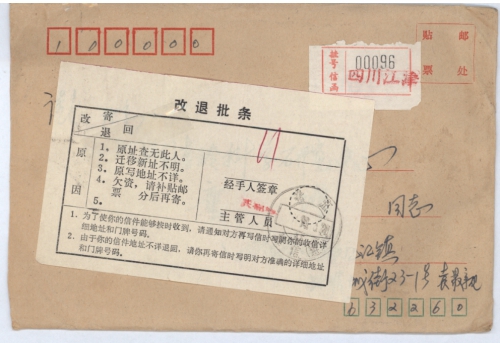 100000
贴 邮
票 处
挂号信函
00096
四川江津
改退批条
改 寄
退 回
原因
1．原址查无此人。
2．迁移新址不明。
3．原写地址不详。
4．欠资，请补贴邮
票）分后再寄。
5．
经手人签章
主管人员
1．为了使你的信件能够按时收到，请通知对方再写信时写明你的收信详
细地址和门牌号码。
2．由于你的信件地址不详退回，请你再寄信时写明对方准确的详细地址
和门牌号码。
同志
江镇
街23-1号
632260